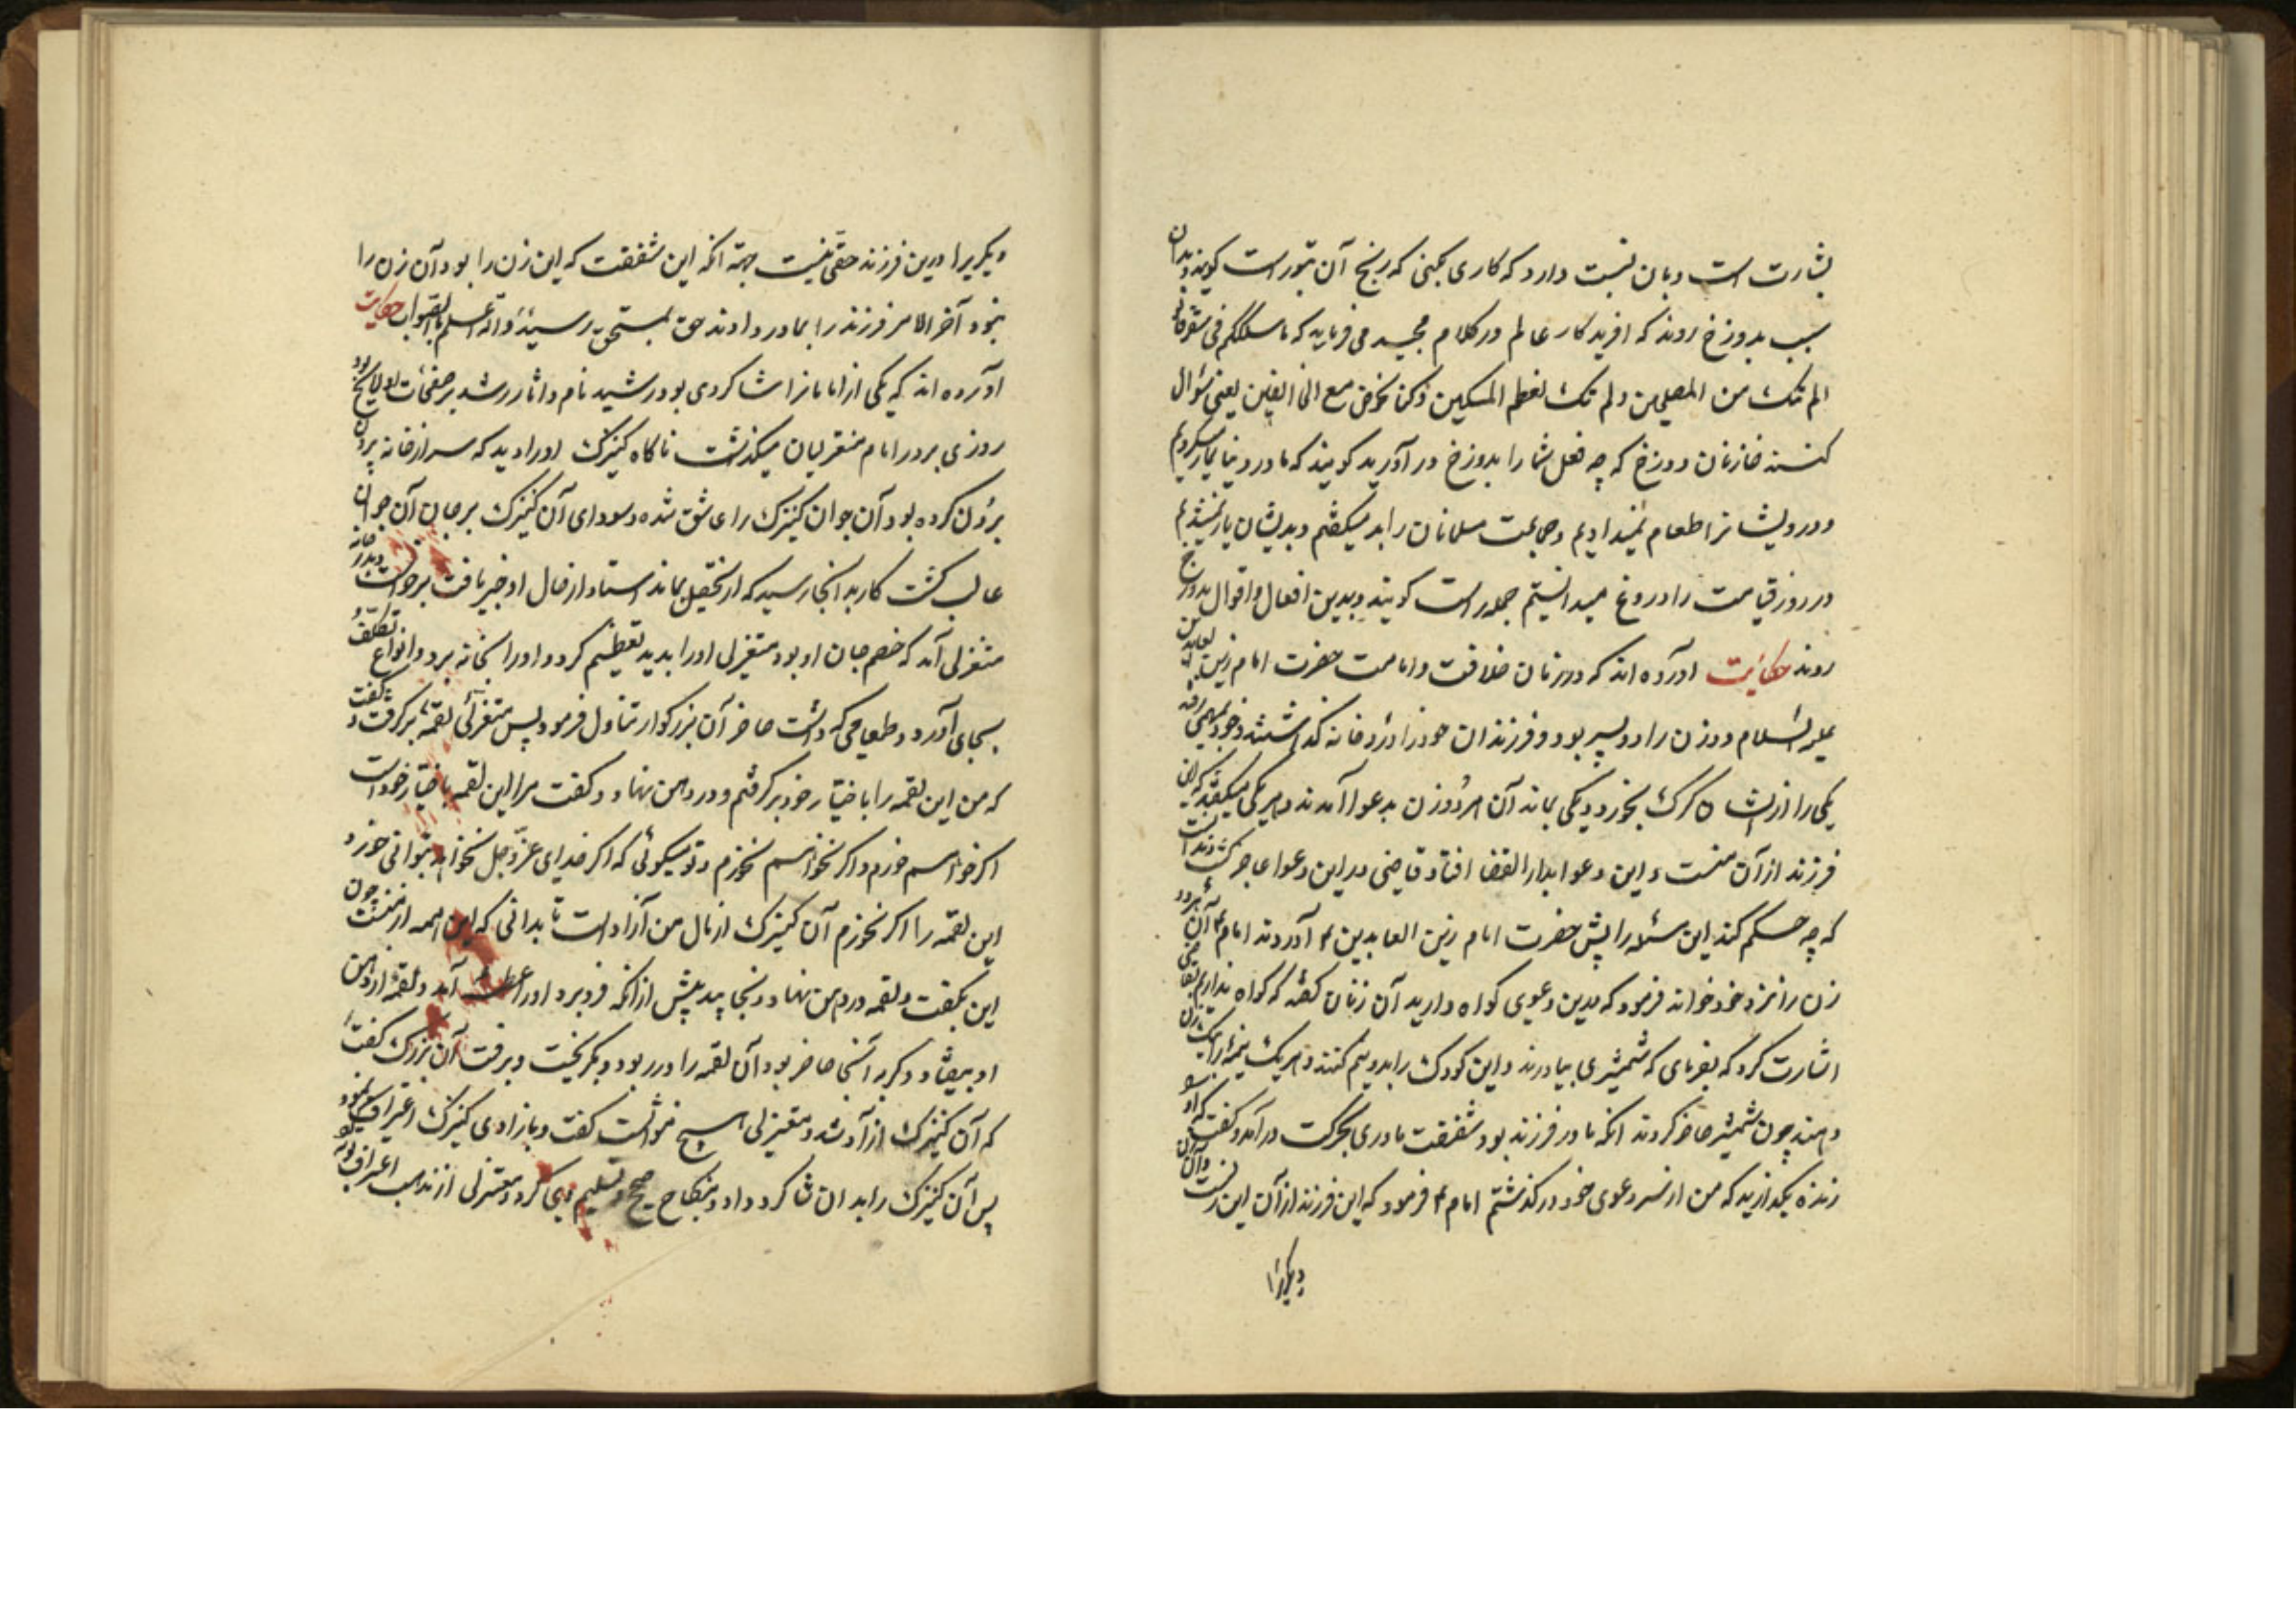 بشارت است و بآن نسبت دارد که کاری بکنی که رنج آن بتو راست کویند و بدان
سبب بدوزخ روند که افریدکار عالم در کلام مجید می فرماید که ما سلککم فی سقر قالوا
الم تک من المصلین ولم تک نطعم المسکین و کنا نخوض مع الخائضین یعنی سؤال
کنند خازنان دوزخ که چه فعل شما را بدوزخ در آورید کویند که ما در دنیا نماز نکردیم
و درویشانرا طعام نمیدادیم و جماعت مسلمانان را بد میکفتیم و بدیشان یار نمیشدیم
و روز قیامت را دروغ میدانستیم جمله راست کویند و بدین افعال و اقوال بدوزخ
روند حکایت آورده اند که در زمان خلافت و امامت حضرت امام زین العابدین
علیه السلام دو زن را دو پسر بود و فرزندان خود را در خانه کذاشتند و خود بمهمی رفتند
یکی را از ایشان کرک بخورد و یکی بماند آن هر دو زن بدعوا آمدند و هر یکی میکفتند که این
فرزند از آن منست و این دعوا بدار القضا افتاد قاضی در این دعوا عاجز کشت ندانست
که چه حکم کند این مسئله را پیش حضرت امام زین العابدین ع آوردند امام ع آن هر دو
زن را نزد خود خواند فرمود که بدین دعوی کواه دارید آن زنان کفتند که کواه نداریم بقاضی
اشارت کرد که بفرمای که شمشیری بیاورند و این کودک را بدو نیم کنند و هر یک نیمه را بیک زن
دهند چون شمشیر حاضر کردند آنکه مادر فرزند بود شفقت مادری بحرکت در آمد و کفت که او را
زنده بکذارید که من از سر دعوی خود در کذشتم امام ع فرمود که این فرزند از آن این زنست و آن
دیکریرا
دیکریرا درین فرزند حقی نیست جهة آنکه این شفقت که این زن را بود آن زن را
نبود آخر الامر فرزند را بمادر دادند حق بمستحق رسید و الله اعلم بالصواب حکایت
آورده اند که یکی از امامانرا شاکردی بود رشید نام و آثار رشد بر صفحات او لایح بود
روزی بر در امام معتزلیان میکذشت ناکاه کنیزک او را دید که سر از خانه برون
برون کرده بود آن جوان کنیزک را عاشق شده و سودای آن کنیزک بر جان آن جوان
غالب کشت کار بدانجا رسید که از تحصیل بماند استاد از حال او خبر یافت برخواست و بدر خانه
معتزلی آمد که خصم جان او بود معتزلی او را بدید تعظیم کرد و او را بخانه برد و انواع تکلف
بجای آورد و طعامی که داشت حاضر آن بزرکوار تناول فرمود پس معتزلی لقمه برکرفت و کفت
که من این لقمه را باختیار خود برکرفتم و در دهن نهاد و کفت مرا این لقمه باختیار خود است
اکر خواهم خورم و اکر نخواهم نخورم و تو میکوئی که اکر خدای عز و جل نخواهد نتوانی خورد
این لقمه را اکر نخورم آن کنیزک از مال من آزاد است تا بدانی که این همه از منست چون
این بکفت و لقمه در دهن نهاد و بخایید پیش از آنکه فرو برد او را عطسه آمد و لقمه از دهن
او بیفتاد و کربه آنجا حاضر بود آن لقمه را در ربود و بکریخت و برفت آن بزرک کفت
که آن کنیزک آزاد شد و معتزلی هیچ نتوانست کفت و بازادی کنیزک اعتراف نمود
پس آن کنیزک را بدان شاکرد داد و بنکاح صحیح تسلیم وی کرد و معتزلی از مذهب اعتزال